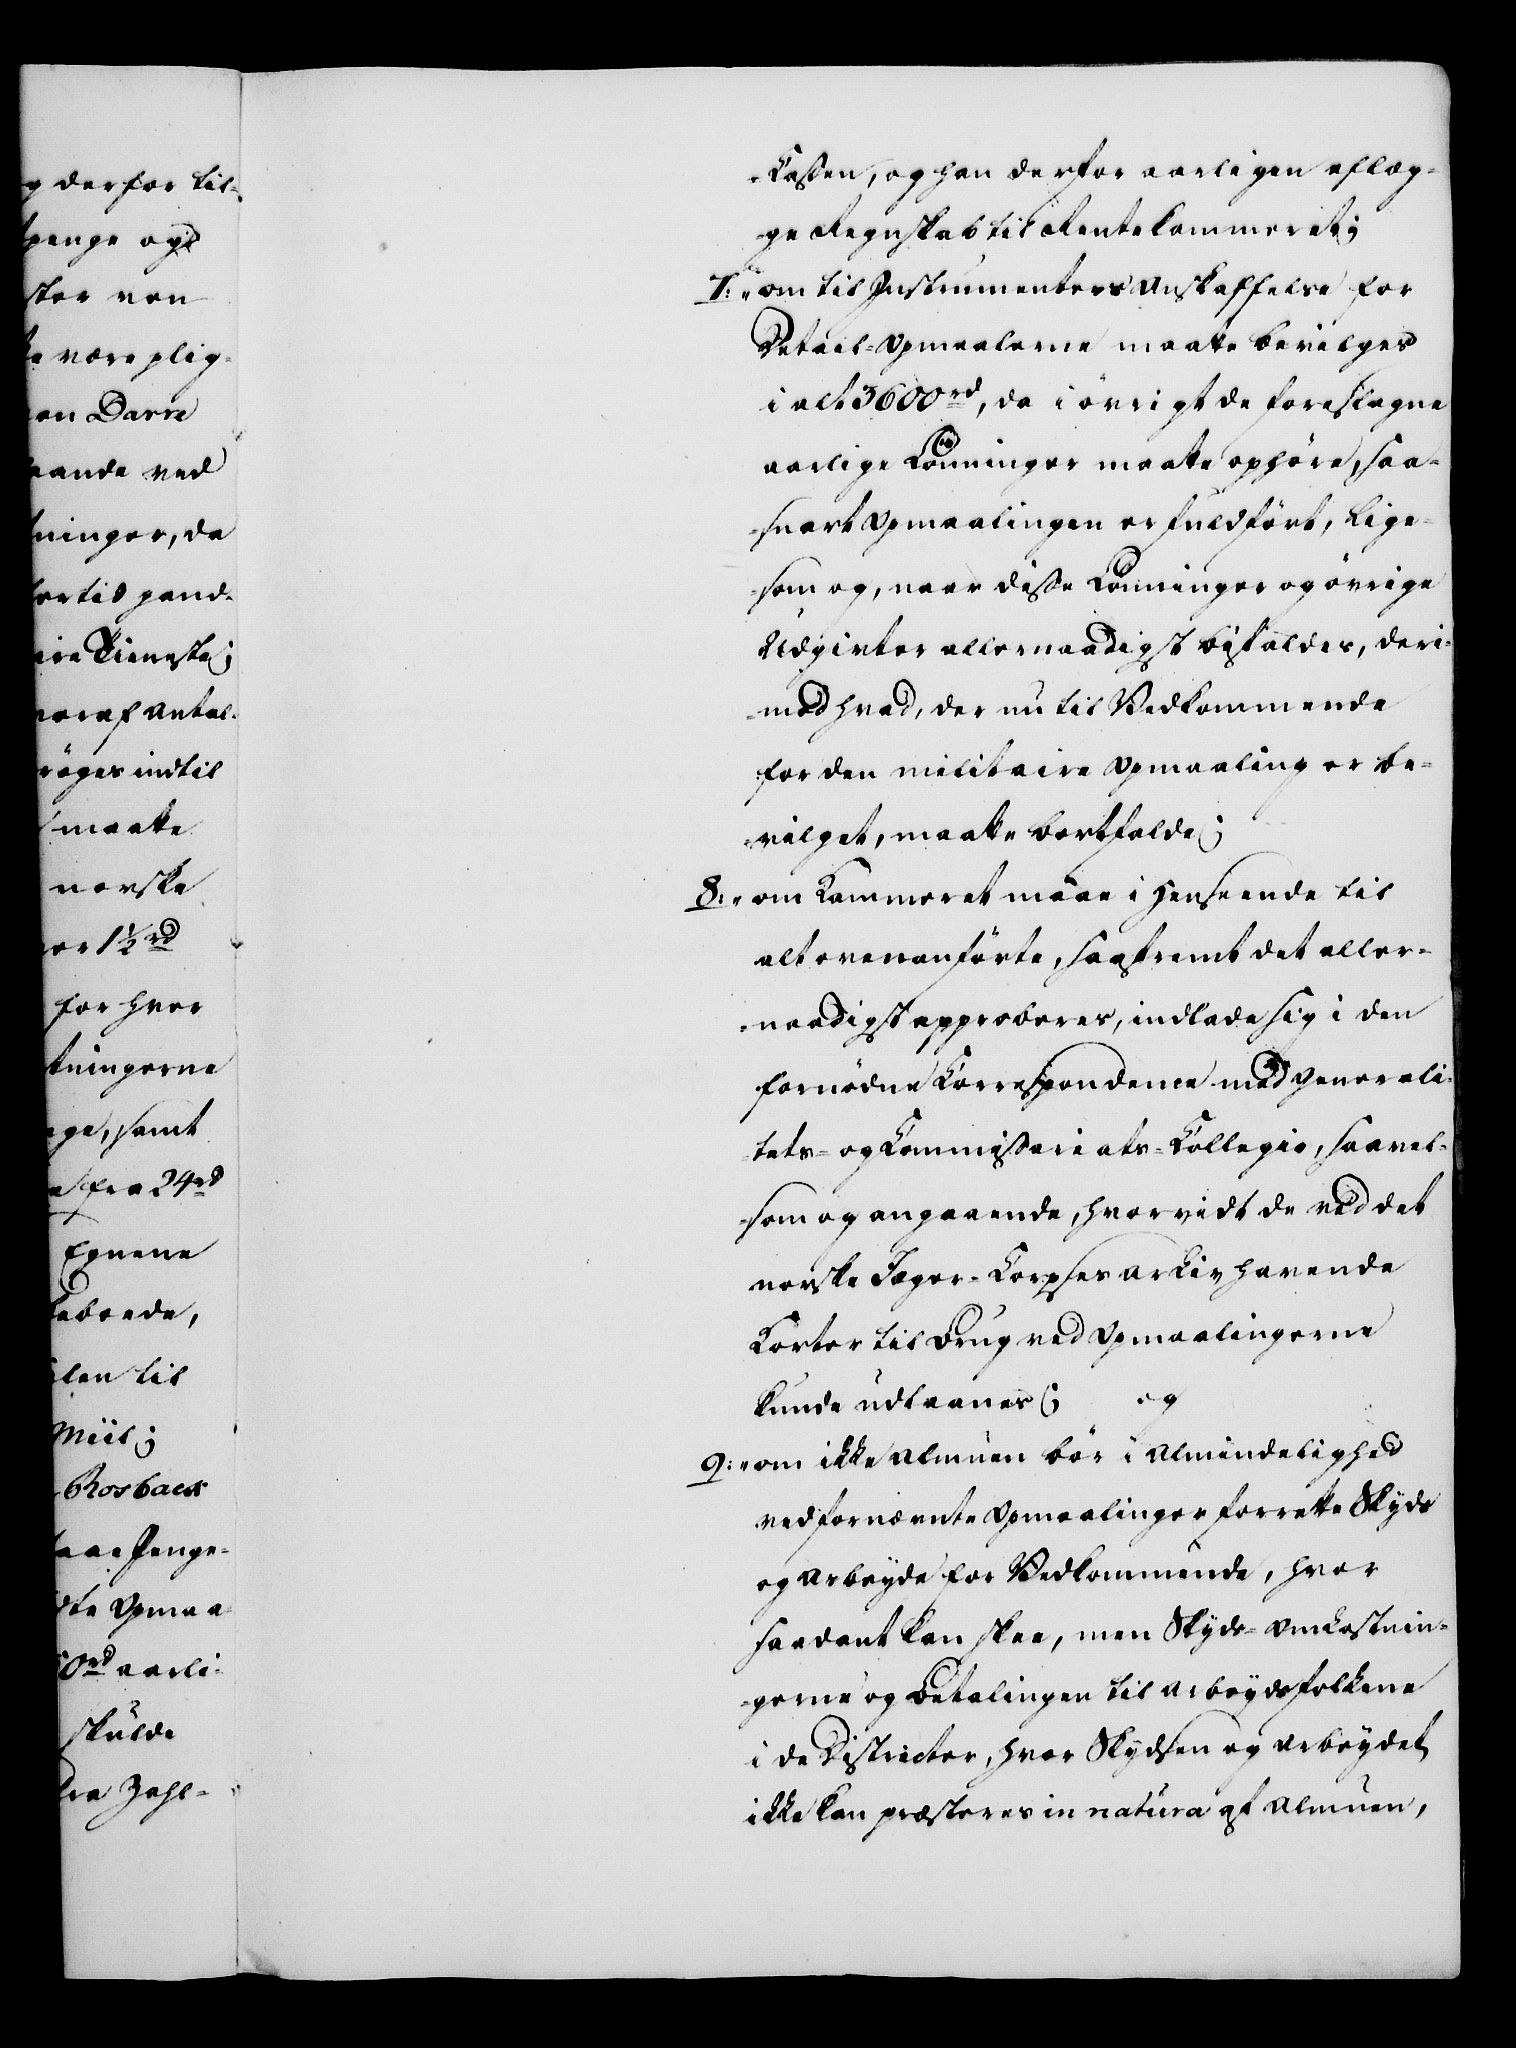 g derfor til-
penge og
ster ven
ke være plig-
Darre
aande ved
ninger, da
fortid gand-
Tieneste;
heraf Antal-
røges indtil
maatte
norske
er 1½ rd
for hver
tningerne
ge, samt
fra 24 rd
Egnene
beboede,
len til
Miil;
Rosback
aae Penge-
te Opmaa-
0 rd aarli-
skulde
Zahl-
-Cassen, og han derfor aarligen aflæg-
ge Regnskab til Rentekammeret;
7: "om til Instrumenters Anskaffelse for
Detail-Opmaalerne maatte bevilges
i alt 3600 rd, da i øvrigt de foreslagne
aarlige Lønninger maatte ophøre, saa-
-snart Opmaalingen er fuldført, lige-
-som og, naar disse Lønninger og øvrige
Udgivter allernaadigst bifaldes, deri-
-mod hvad, der nu til Vedkommende
for den militaire Opmaaling er be-
-vilget, maatte bortfalde;
8: "om Kammeret maae i Henseende til
alt ovenanførte, saafremt det aller-
-naadigst approberes, indlade sig i den
fornødne Correspondence med Generali-
tets- og Commissariats-Collegio, saavel-
-som og angaaende, hvorvidt de ved det
norske Jæger-Corpses Arkiv havende
Korter til Brug ved Opmaalingerne
kunde udlaanes; og
9: "om ikke Almuen bør i Almindelighed
ved fornævnte Opmaalinger forrette Skyds
og Arbeyde for Vedkommende, hvor
saadant kan skee, men Skyds-Omkostnin-
-gerne og Betalingen til Arbeydsfolkene
i de Districter, hvor Skydsen og Arbeydet
ikke kan præsteres in natura af Almuen,